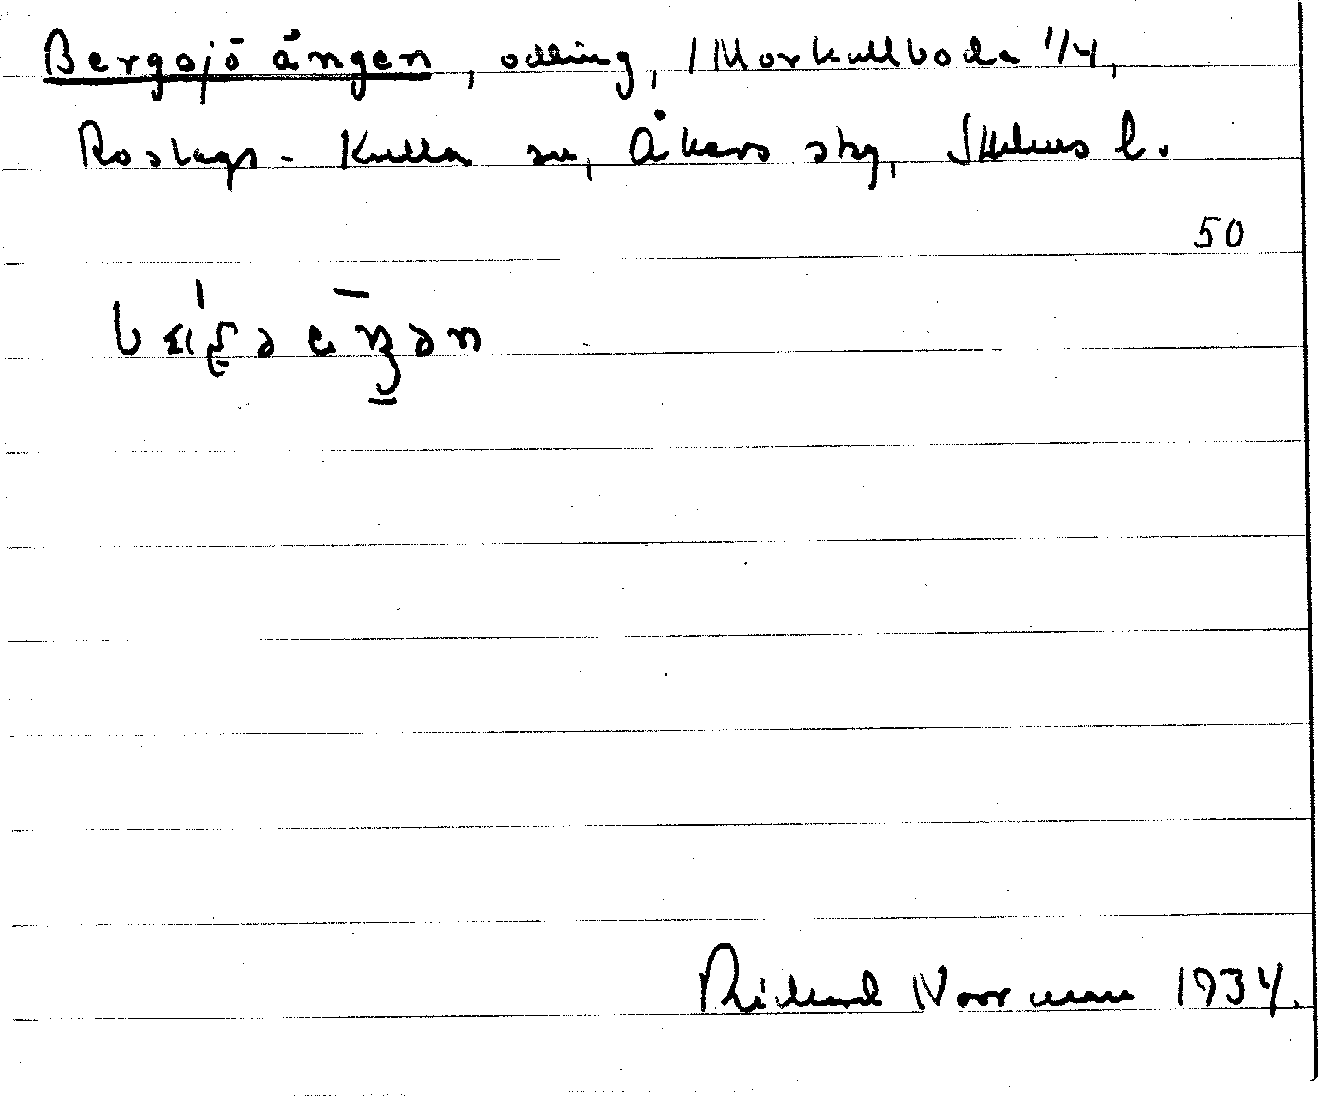 Bergsjöängen, odling, Morkullboda 1/4,
Roslags-Kulla sn, Åkers skg, Sthlms l.
50
Richard Norrman 1934.